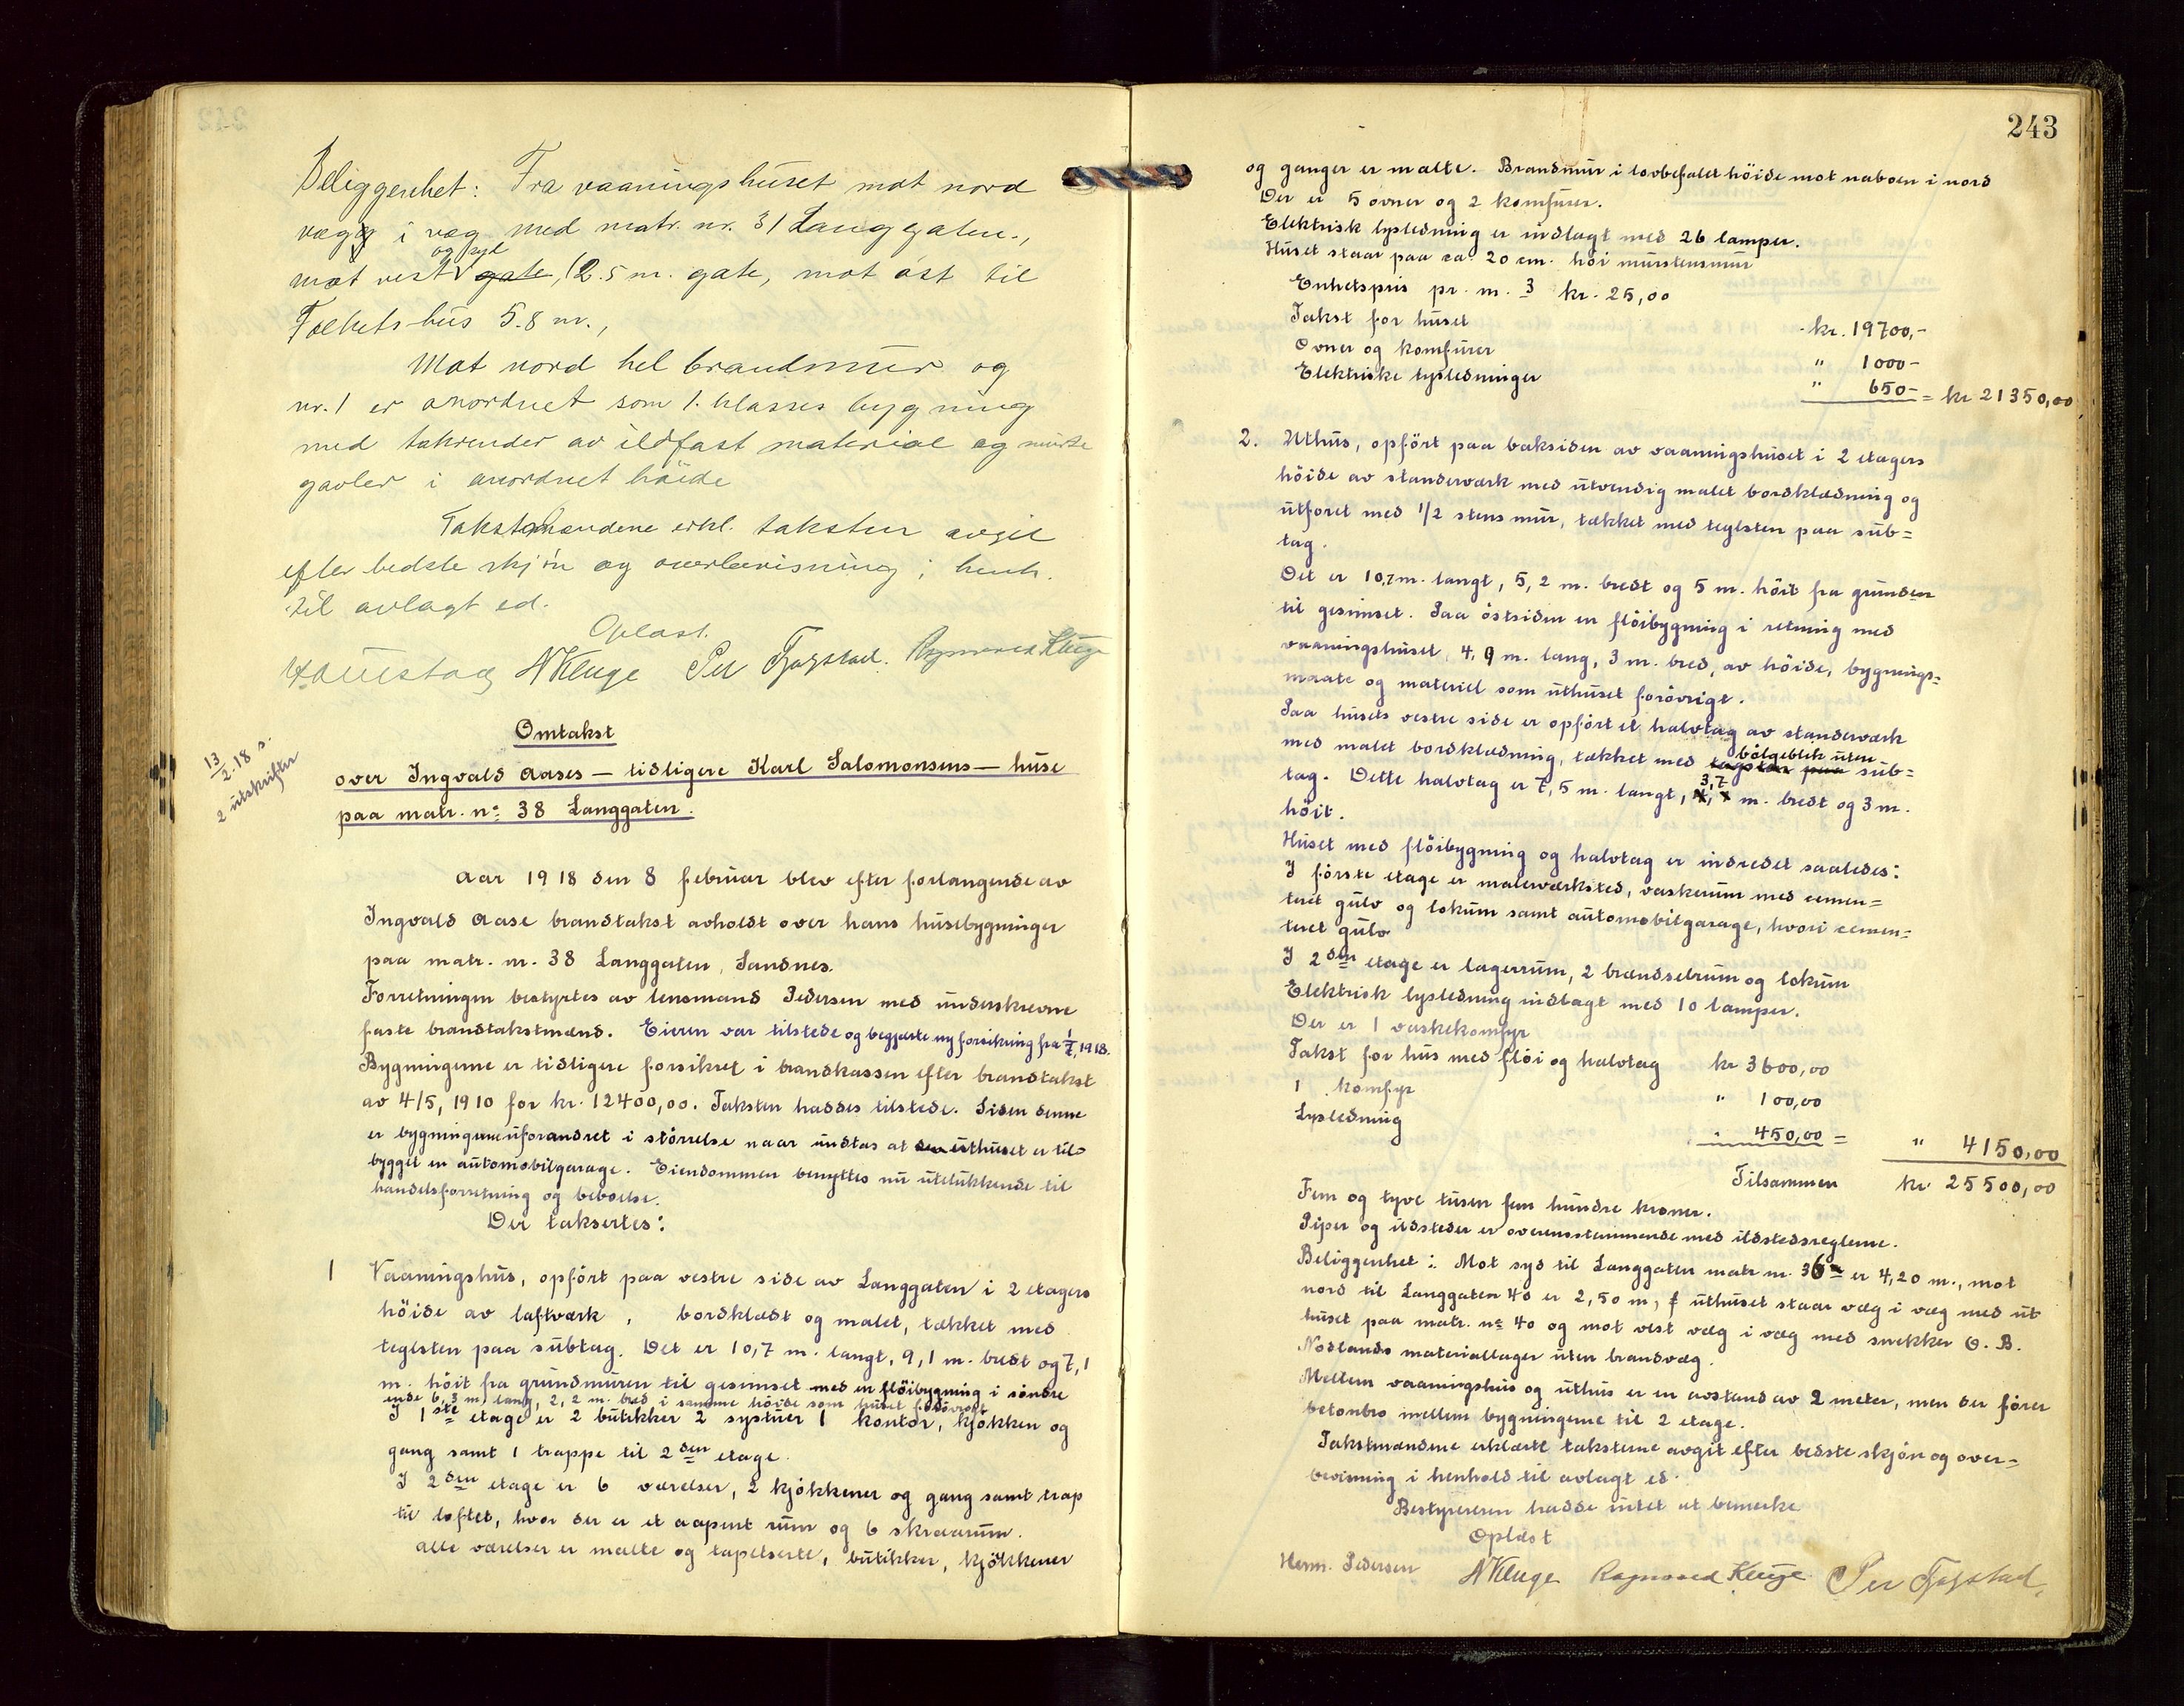 Beliggenhet: Fra vaaningshuset mot nord
væg i væg med matr. nr. 31 Langgaten.,
mot vest og syd gate, 12.5 m. gate, mot øst til
Folkets hus 5.8 m.,
Mot nord hel brandmur og
nr. 1 er anordnet som 1. klasses bygning
med takrender av ildfast material og murte
gavler i anordnet høide
Takstmændene erkl. taksten avgit
efter bedste skjøn og overbevisning i henh.
til avlagt ed.
Oplæst.
NKluge Per Fjogstad. Rasmus Kluge
13/2.18 s.
2 utskrifter
Omtakst
over Ingvald Aases — tidligere Karl Salomonsens — huse
paa matr. no 38 Langgaten.
Aar 1918 den 8 februar blev efter forlangende av
Ingvald Aase brandtakst avholdt over hans husebygninger
paa matr. nr. 38 Langgaten, Sandnes.
Forretningen bestyrtes av lensmand Pedersen med underskrevne
faste brandtakstmænd. Eieren var tilstede og begjærte ny forsikring fra 1/2, 1918.
Bygningerne er tidligere forsikret i brandkassen efter brandtakst
av 4/5, 1910 for kr. 12400,00. Taksten haddes tilstede. Siden denne
er bygningerne uforandret i størrelse naar undtas at uthuset er til-
bygget en automobilgarage. Eiendommen benyttes nu utelukkende til
handelsforretning og beboelse.
Der taksertes:
1 Vaaningshus, opført paa vestre side av Langgaten i 2 etagers
höide av laftværk, bordklædt og malet, tækket med
teglsten paa subtag. Det er 10,7 m. langt, 9,1 m. bredt og 7,1
m. höit fra grundmuren til gesimset med en flöibygning i söndre
ende 6,3 m. lang, 2,2 m. bred i samme höide som huset forövrigt
I 1ste etage er 2 butikker 2 systuer 1 kontor, kjökken og
gang samt 1 trappe til 2den etage.
I 2den etage er 6 værelser, 2 kjökkener og gang samt trap
til loftet, hvor der er et aapent rum og 6 skraarum.
Alle værelser er malte og tapetserte, butikker, kjökkener
243
og ganger er malte. Brandmur i lovbefalet höide mot naboen i nord
Der er 5 ovner og 2 komfurer.
Elektrisk lysledning er indlagt med 26 lamper.
Huset staar paa ca 20 cm. höi murstensmur
Enhetspris pr. m. 3 kr. 25,00
Takst for huset kr. 19700,-
Ovner og komfurer " 1000-
Elektriske lysledninger " 650- = kr 21350,00
2. Uthus, opfört paa baksiden av vaaningshuset i 2 etagers
höide av standerværk med utvendig malet bordklædning og
utforet med 1/2 stens mur, tækket med teglsten paa sub=
tag.
Det er 10,7 m. langt, 5,2 m. bredt og 5 m. höit fra grunden
til gesimset. Paa östsiden en flöibygning i retning med
vaaningshuset, 4,9 m. lang, 3 m. bred, av höide, bygnings=
maate og materiel som uthuset forövrigt.
Paa husets vestre side er opfört et halvtag av standerværk
med malet bordklædning, tækket med teglsten paa bölgeblik uten sub=
tag. Dette halvtag er 7,5 m. langt, 3,7 m. bredt og 3 m.
höit.
Huset med flöibygning og halvtag er indredet saaledes:
I förste etage er malerværksted, vaskerum med cemen=
teret gulv og lokum samt automobilgarage, hvori cemen=
teret gulv
I 2den etage er lagerrum, 2 brændselrum og lokum
Elektrisk lysledning indlagt med 10 lamper.
Der er 1 vaskekomfyr
Takst for hus med flöi og halvtag kr 3600,00
1 komfyr " 100,00
Lysledning " 450,00 = " 4150,00
Tilsammen kr 25500,00
Fem og tyve tusen fem hundre kroner.
Piper og ildsteder er overensstemmende med ildstedsreglerne.
Beliggenhet: Mot syd til Langgaten matr nr. 36 er 4,20 m., mot
nord til Langgaten 40 er 2,50 m, uthuset staar væg i væg med ut
huset paa matr. no 40 og mot vest væg i væg med snekker O. B.
Nodlands materiallager uten brandvæg.
Mellem vaaningshus og uthus er en avstand av 2 meter, men der förer
betonbro mellem bygningerne til 2 etage.
Takstmændene erklærte taksterne avgit efter bedste skjön og over=
bevisning i henhold til avlagt ed.
Bestyreren hadde intet at bemerke
Oplæst
Herm. Pedersen NKluge Rasmus Kluge Per Fjogstad.